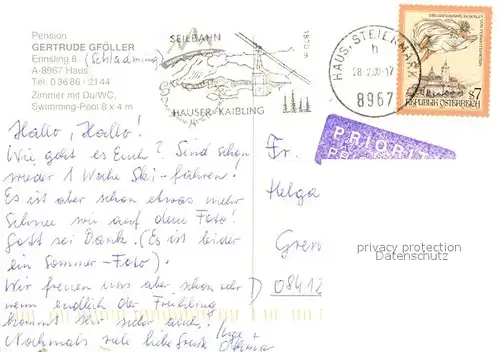 Pension
GERTRUDE GFÖLLER
Ennsling 8 (Schladming)
A-8967 Haus
Tel. 0 36 86 - 21 44
Zimmer mit Du/WC,
Swimming-Pool 8 x 4 m
SEILBAHN
1870 m
HAUSER-KAIBLING
HAUS, STEIERMARK
h
8967
REPUBLIK ÖSTERREICH
S7
PRIORITY
Hallo, Hallo!
Wie geht es Euch? Sind schon
wieder 1 Woche Ski-fahren!
Es ist aber schon etwas mehr
Schnee wie auf dem Foto!
Gott sei Dank. (Es ist leider
ein Sommer-Foto).
Wir freuen uns aber schon sehr
wenn endlich der Frühling
kommt Ihr sicher auch!
Nochmals viele liebe Grüße Inge +
Fr.
Helga
D 08412
privacy protection
Datenschutz